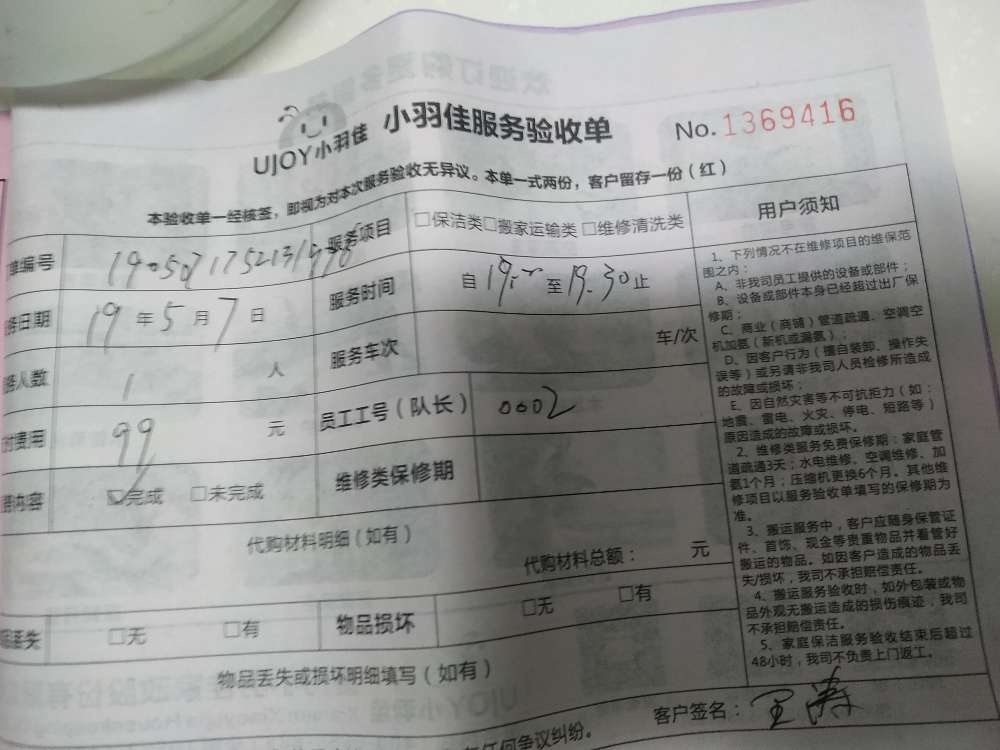 UJOY小羽佳 小羽佳服务验收单 No.1369416
本验收单一经核签，即视为对本次服务验收无异议。本单一式两份，客户留存一份（红）
单编号 服务项目 □保洁类□搬家运输类□维修清洗类
日期 19年5月7日 服务时间 自 至19.30止
人数 1人 服务车次 车/次
费用 99元 员工工号（队长） 0002
内容 ☑完成 □未完成 维修类保修期
代购材料明细（如有）
代购材料总额： 元
丢失 □无 □有 物品损坏 □无 □有
物品丢失或损坏明细填写（如有）
任何争议纠纷。
客户签名：王涛
用户须知
1、下列情况不在维修项目的维保范
围之内：
A、非我司员工提供的设备或部件；
B、设备或部件本身已经超过出厂保
修期；
C、商业（商铺）管道疏通、空调空
机加氨（新机或漏氨）；
D、因客户行为（擅自装卸、操作失
误等）或另请非我司人员检修所造成
的故障或损坏；
E、因自然灾害等不可抗拒力（如：
地震、雷电、火灾、停电、短路等）
原因造成的故障或损坏。
2、维修类服务免费保修期：家庭管
道疏通3天；水电维修、空调维修、加
氨1个月；压缩机更换6个月。其他维
修项目以服务验收单填写的保修期为
准。
3、搬运服务中，客户应随身保管证
件、首饰、现金等贵重物品并看管好
搬运的物品。如因客户造成的物品丢
失/损坏，我司不承担赔偿责任。
4、搬运服务验收时，如外包装或物
品外观无搬运造成的损伤痕迹，我司
不承担赔偿责任。
5、家庭保洁服务验收结束后超过
48小时，我司不负责上门返工。